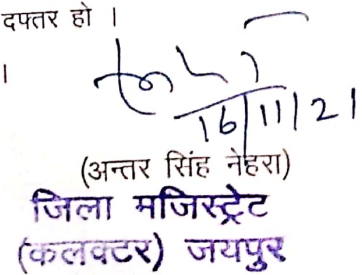 दफ्तर हो ।
।
16/11/21
(अन्तर सिंह नेहरा)
जिला मजिस्ट्रेट
(कलक्टर) जयपुर